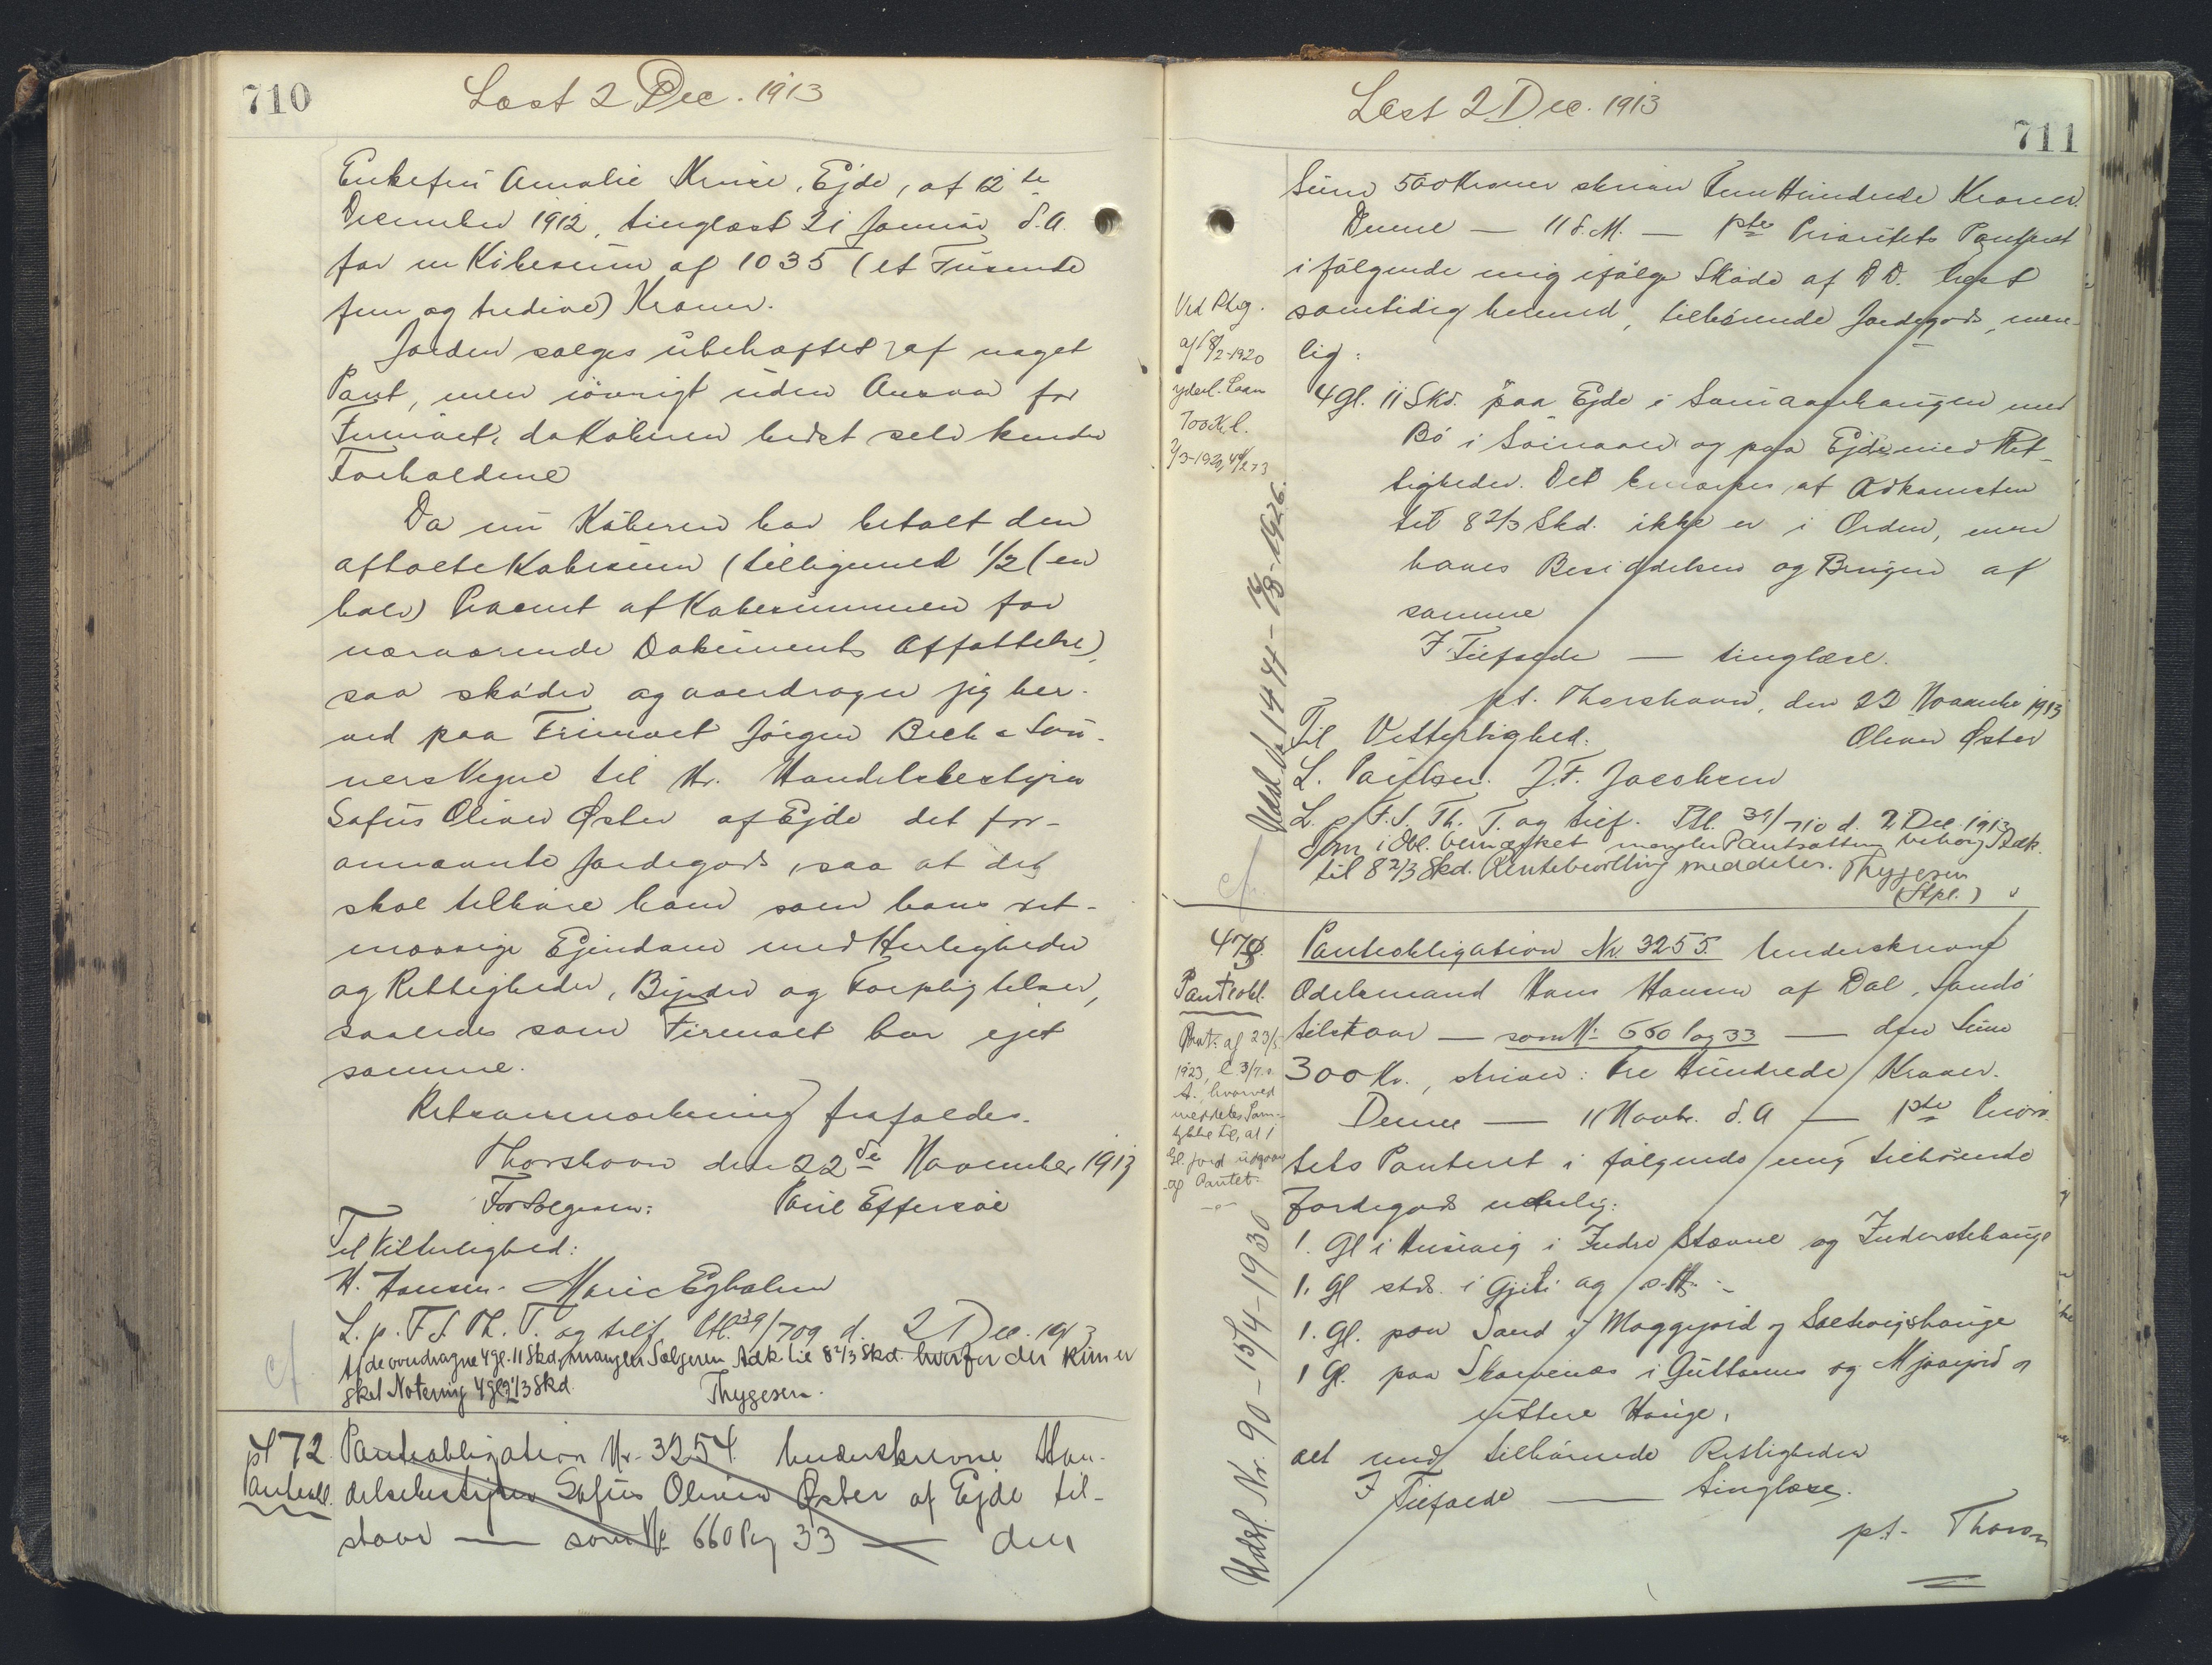 710
Læst 2 Dec. 1913
Enkefru Amalie Kruse, Ejde, af 12te
December 1912, tinglæst 21 Januar d.A.
for en Købesum af 1035 (et Tusende
fem og tredive) Kroner.
Jorden sælges ubehæftet af noget
Pant, men iøvrigt uden Ansvar for
Firmaet, da Køberen bedst selv kender
Forholdene
Da nu Køberen har betalt den
aftalte Købesum (tilligemed 1/2 (en
halv) Procent af Købesummen for
nærværende Dokuments Affattelse),
saa skøder og overdrager jeg her-
ved paa Firmaet Jørgen Bech & Søn-
ners Vegne til Hr. Handelsbestyrer
Sofus Oliver Øster af Ejde det for-
annævnte Jordegods, saa at det
skal tilhøre ham som hans ret-
mæssige Ejendom med Herligheder
og Rettigheder, Byrder og Forpligtelser,
saaledes som Firmaet har ejet
samme.
Retsanmærkning frafaldes.
Thorshavn den 22de November 1913
For Sælgeren: Poul Effersøe
Til Vitterlighed:
H. Hansen. Marie Egholm
L. p. F.S. Th. T. og tilf. Ptl. 39/709 d. 2 Dec. 1913
Af de overdragne 4 gl. 11 Skd. mangler Sælgeren Adk. til 8 2/3 Skd. hvorfor der kun er
sket Notering 4 gl 2 1/3 Skd. Thygesen.
cf.
472
Panteobl.
Panteobligation Nr. 3254. Underskrevne Han-
delsbestyrer Sofus Oliver Øster af Ejde til-
staar — som Nr. 660 Pag 33 — den
Læst 2 Dec. 1913
711
Sum 500 Kroner skriver Fem Hundrede Kroner.
Denne — 11 d.M. — 1ste Prioritets Panteret
i følgende mig ifølge Skøde af D.D. læst
samtidig hermed, tilhørende Jordegods, nem-
lig:
4 gl. 11 Skd. paa Ejde i
Bø i og paa Ejde med Ret-
tigheder. Det bemærkes at Adkomsten
til 8 2/3 Skd. ikke er i Orden, men
haves Besiddelsen og Brugen af
samme
I Tilfælde — tinglæse.
pt. Thorshavn, den 22 November 1913
Til Vitterlighed: Oliver Øster
L. Poulsen. J.F. Jacobsen
L. p. F.S. Th. T. og tilf. Ptl. 39/710 d. 2 Dec. 1913
Som i Obl. bemærket mangler Pantsætteren behørig Adk.
til 8 2/3 Skd. meddeles. Thygesen
(Stpl.)
Ved Pteg.
af 18/2-1920
yderl. Laan
700 Kr. l.
Udsl. Nr. 1444 - 1926.
cf.
473.
Panteobl.
Panteobligation Nr. 3255. Underskrevne
Odelsmand Hans Hansen af Dal, Sandø
tilstaar — som Nr. 660 Pag 33 — den Sum
300 Kr., skriver: Tre Hundrede Kroner.
Denne — 11 Novbr. d.A — 1ste Priori-
tets Panteret i følgende mig tilhørende
Jordegods nemlig:
1. Gl i Husavig i Indre Stævne og Inderstehauge
1. Gl stds. i Gjéti og s. H.
1. Gl. paa Sand i og
1 Gl. paa Skarvenæs i og
yttere Hauge,
alt med tilhørende Rettigheder
I Tilfælde — tinglæse.
pt. Thorsh
af 23/5
1923, l. 3/7. s.
A., hvorved
meddeles Sam-
tykke til, at 1
Gl. Jord udgaar
af Pantet.
Udsl. Nr. 90 - 15/4-1930